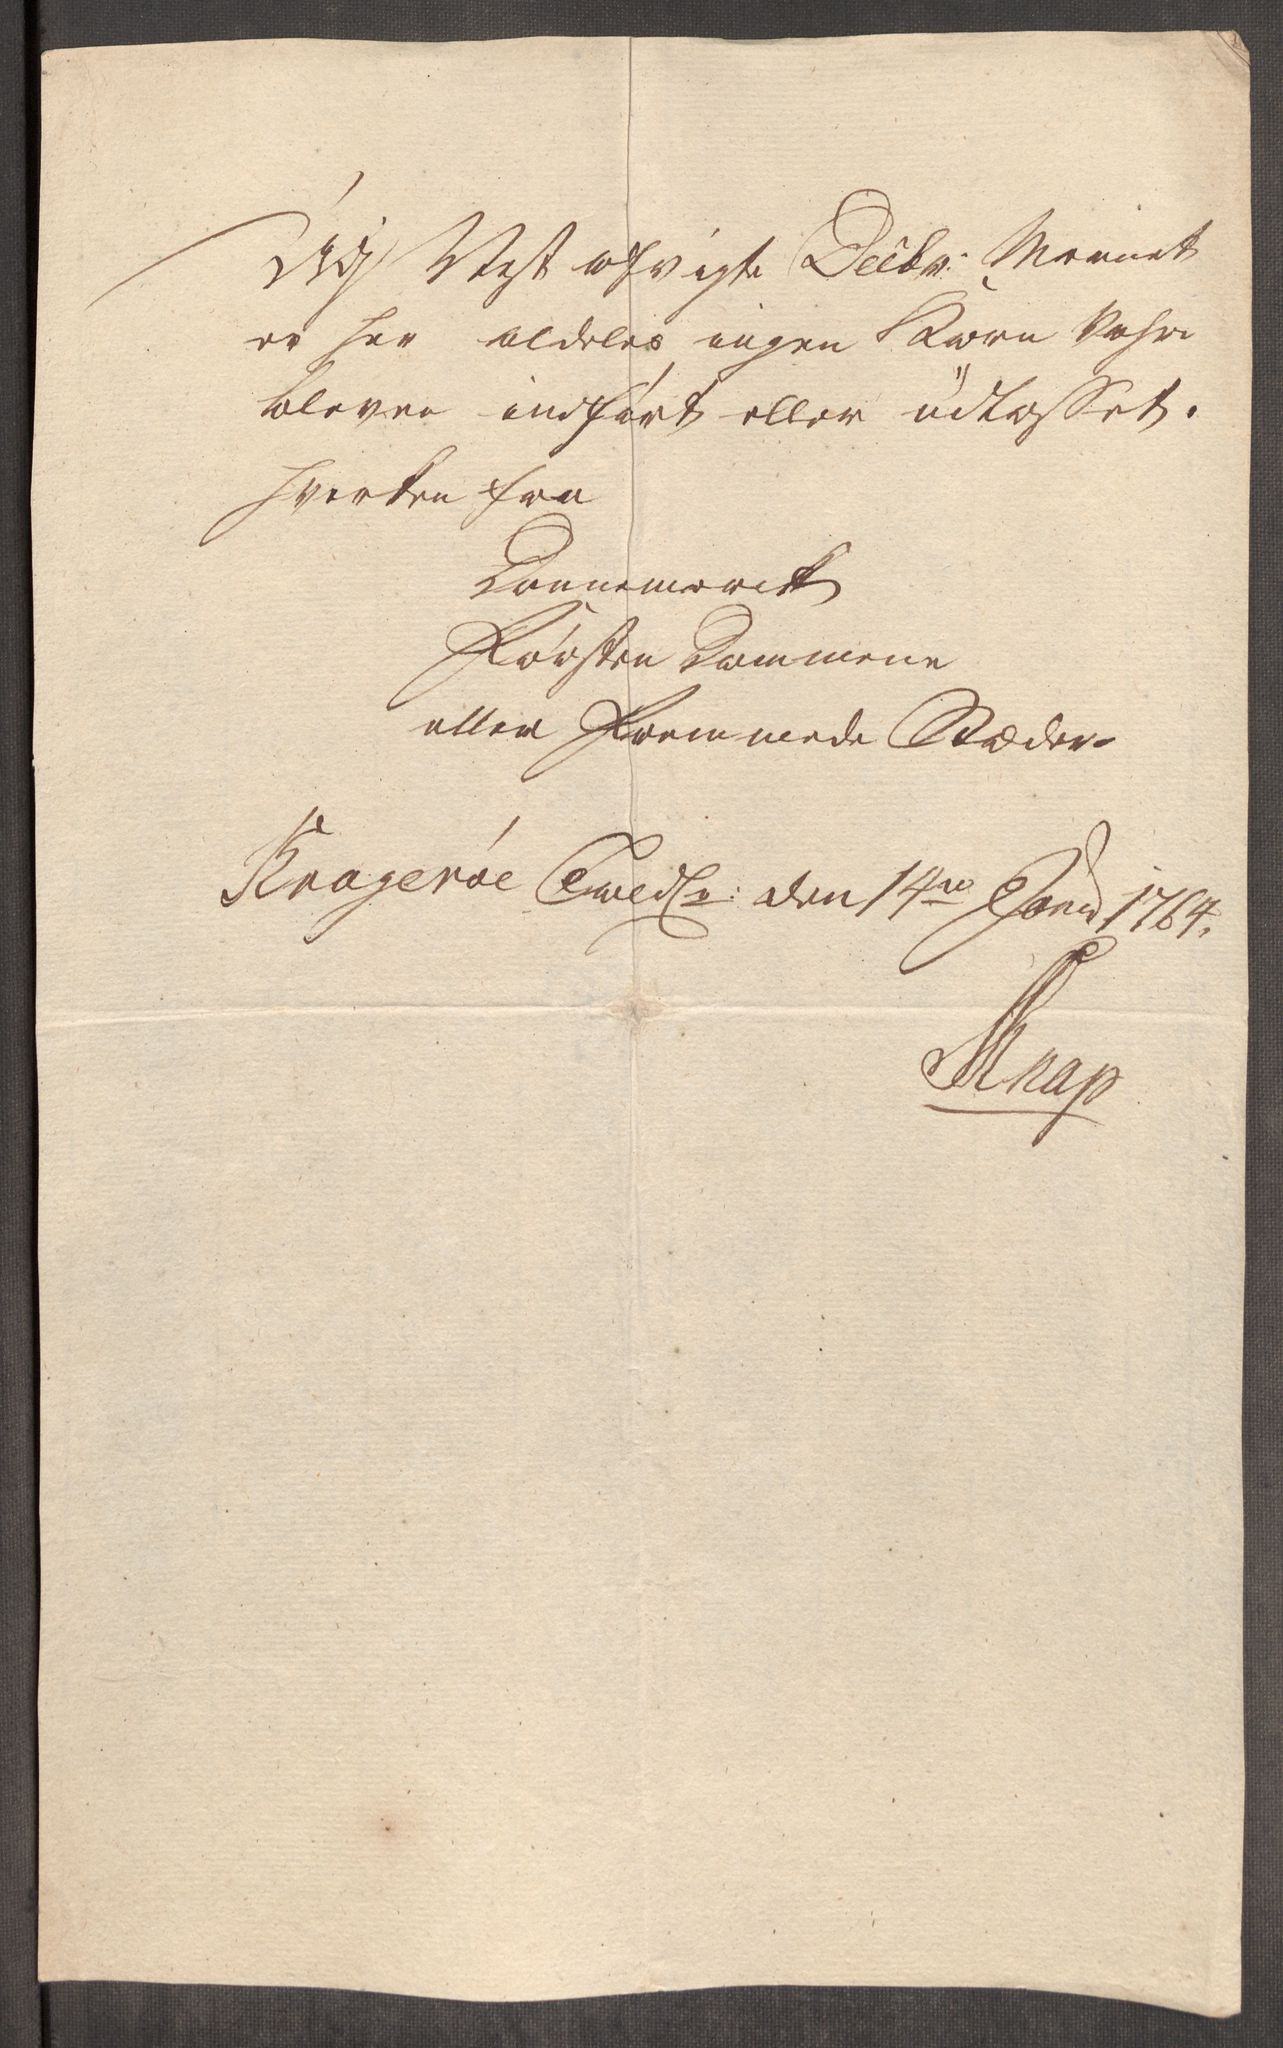 Udj Nest afvigte Decbr: Maanet
er her aldeles ingen Korn Vahre
bleven indført eller udlosset.
hverken fra
Dannemarck
Førstendommene
eller Fremmede Stæder.
Kragerøe Toeldst: den 14de Janu 1764.
Knap